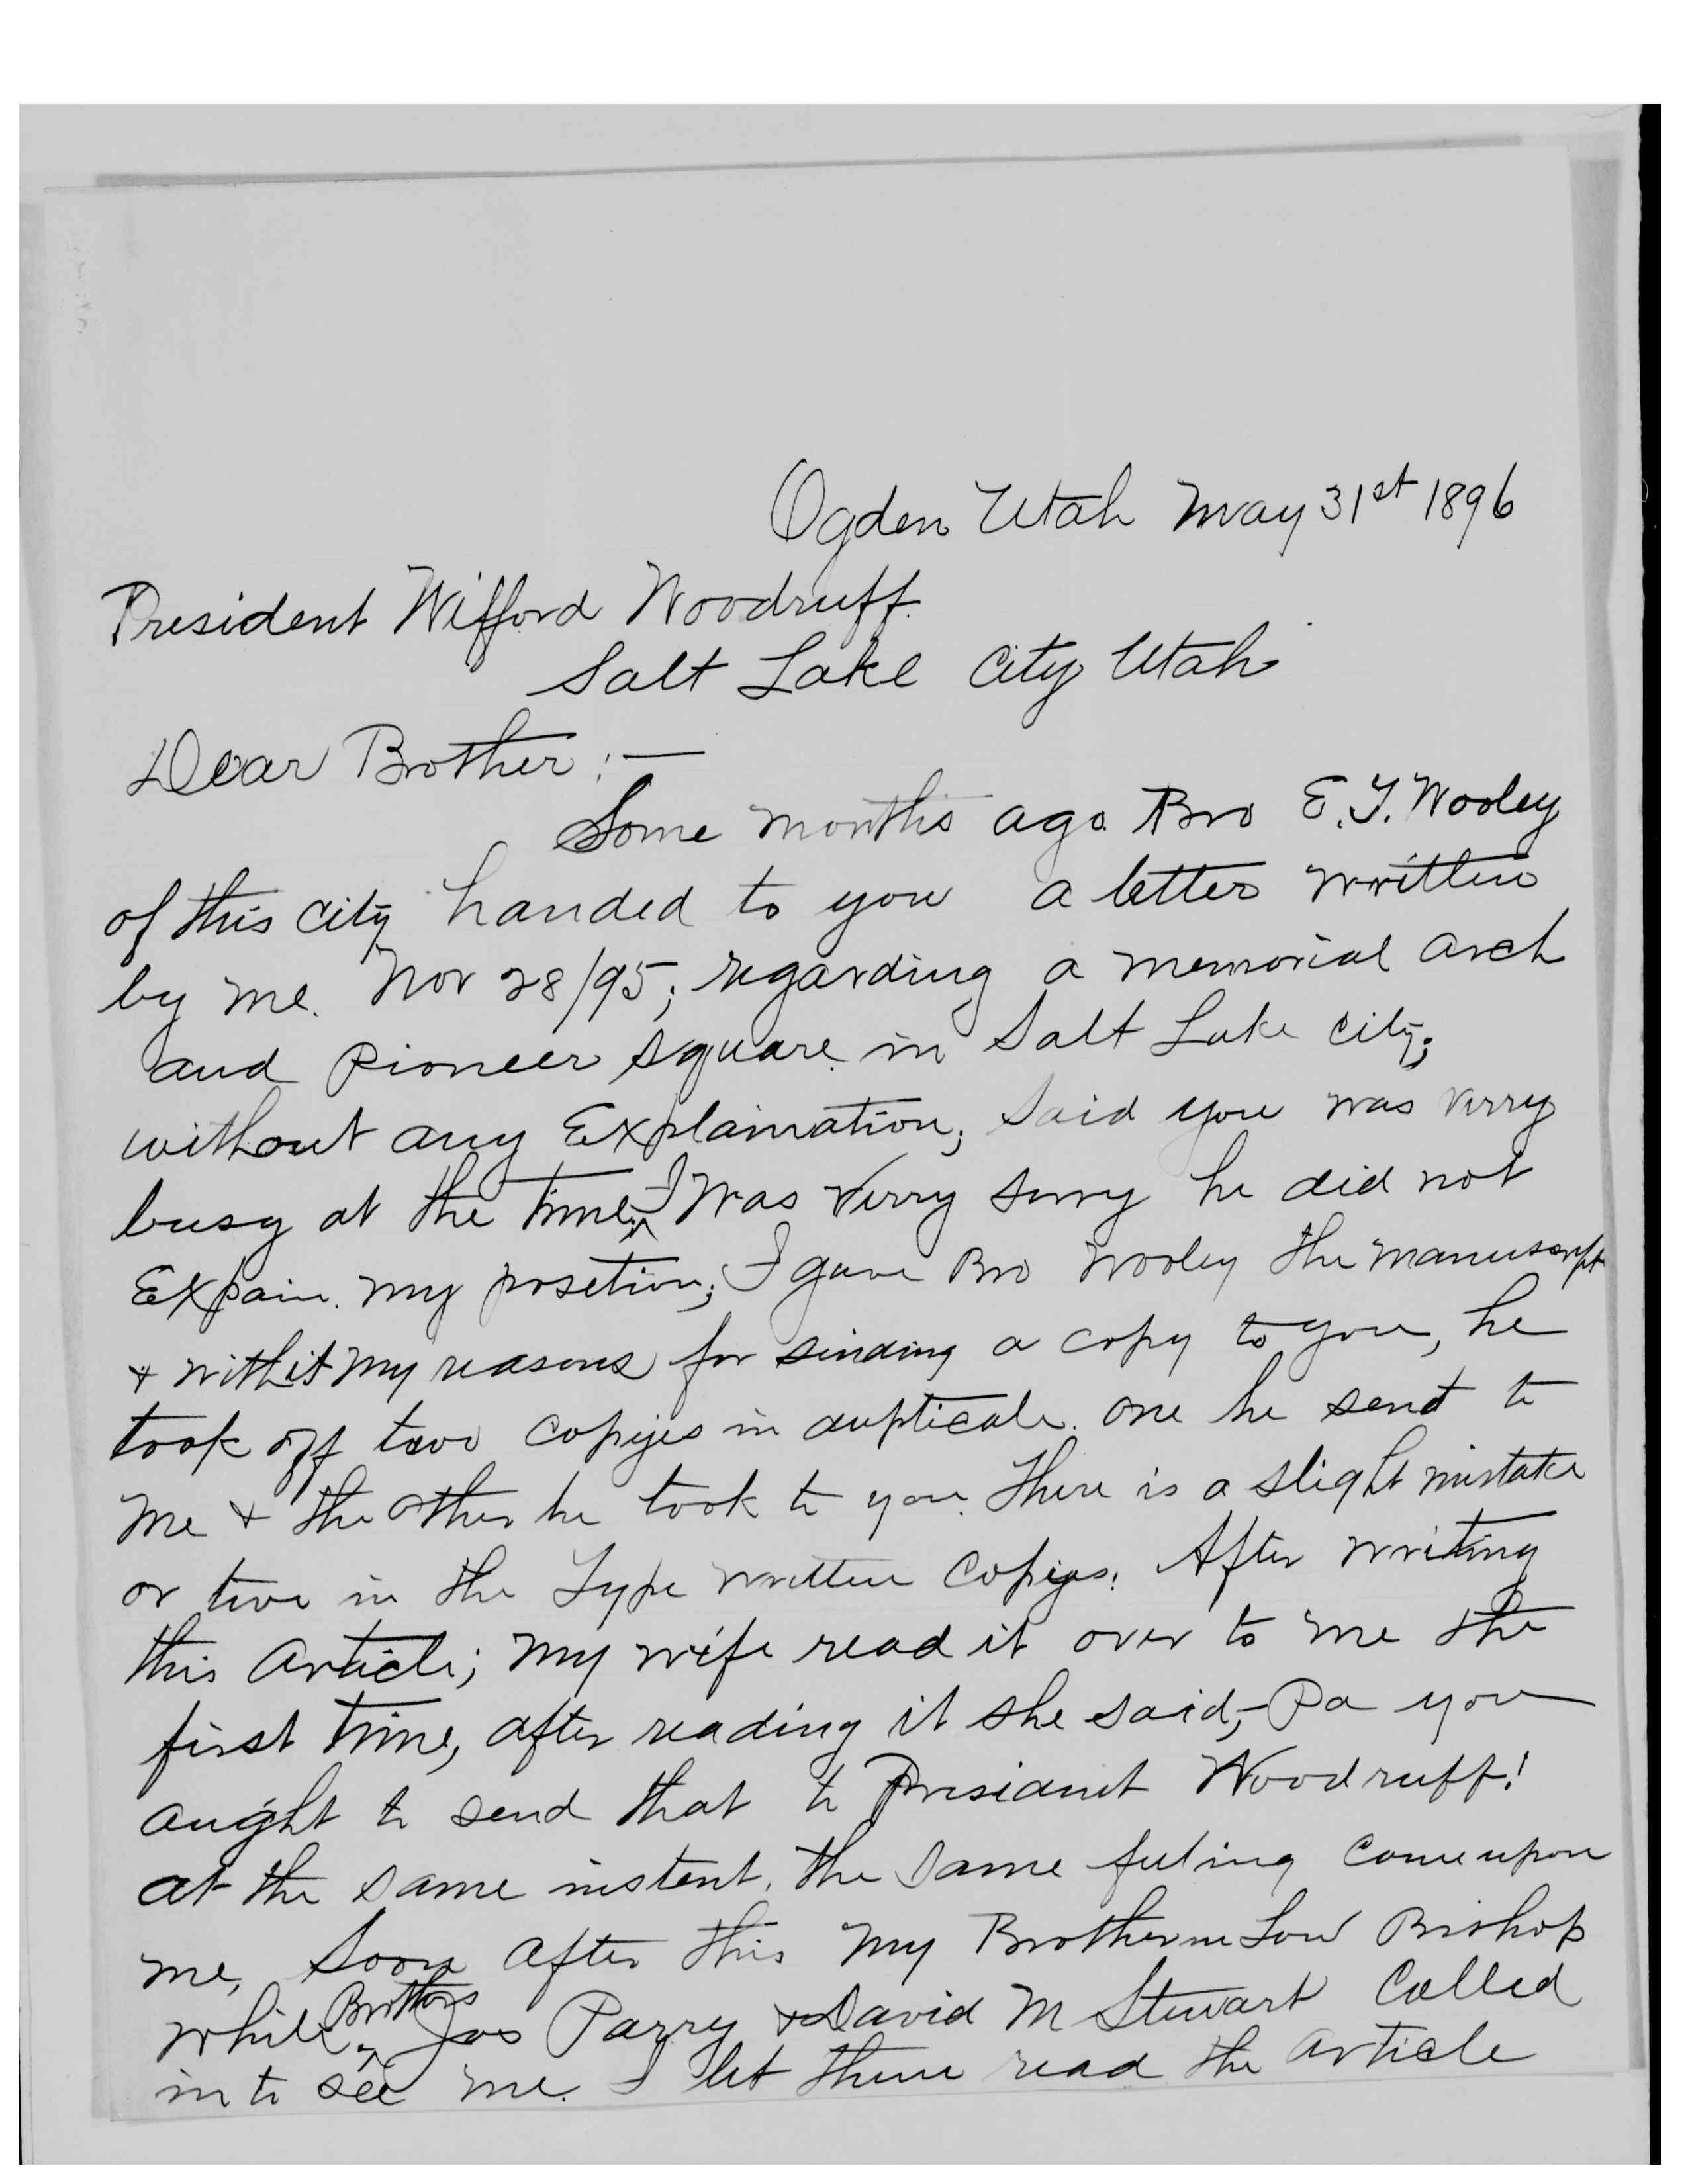 Ogden Utah May 31st 1896
President Wifford Woodruff.
Salt Lake City Utah
Dear Brother :—
Some months ago Bro E. T. Wooley
of this city handed to you a letter written
by me. Nov 28/95; regarding a memorial arch
and Pioneer square in Salt Lake city;
without any Explaination; Said you was verry
busy at the time, I was verry sorry he did not
Expain my posetion; I gave Bro Wooley the manuscript
& with it my reasons for sending a copy to you, he
took off two copyes in duplicate. one he send to
me & the other he took to you. There is a slight mistake
or two in the Type written Copyes. After writing
this Article; my wife read it over to me the
first time, after reading it she said,- Pa you
aught to send that to President Woodruff!
at the same instent, the same feeling come upon
me, Soon after this my Brother in Law Bishop
while Brothers Jos Parry & David M Stewart Called
in to see me. I let them read the article